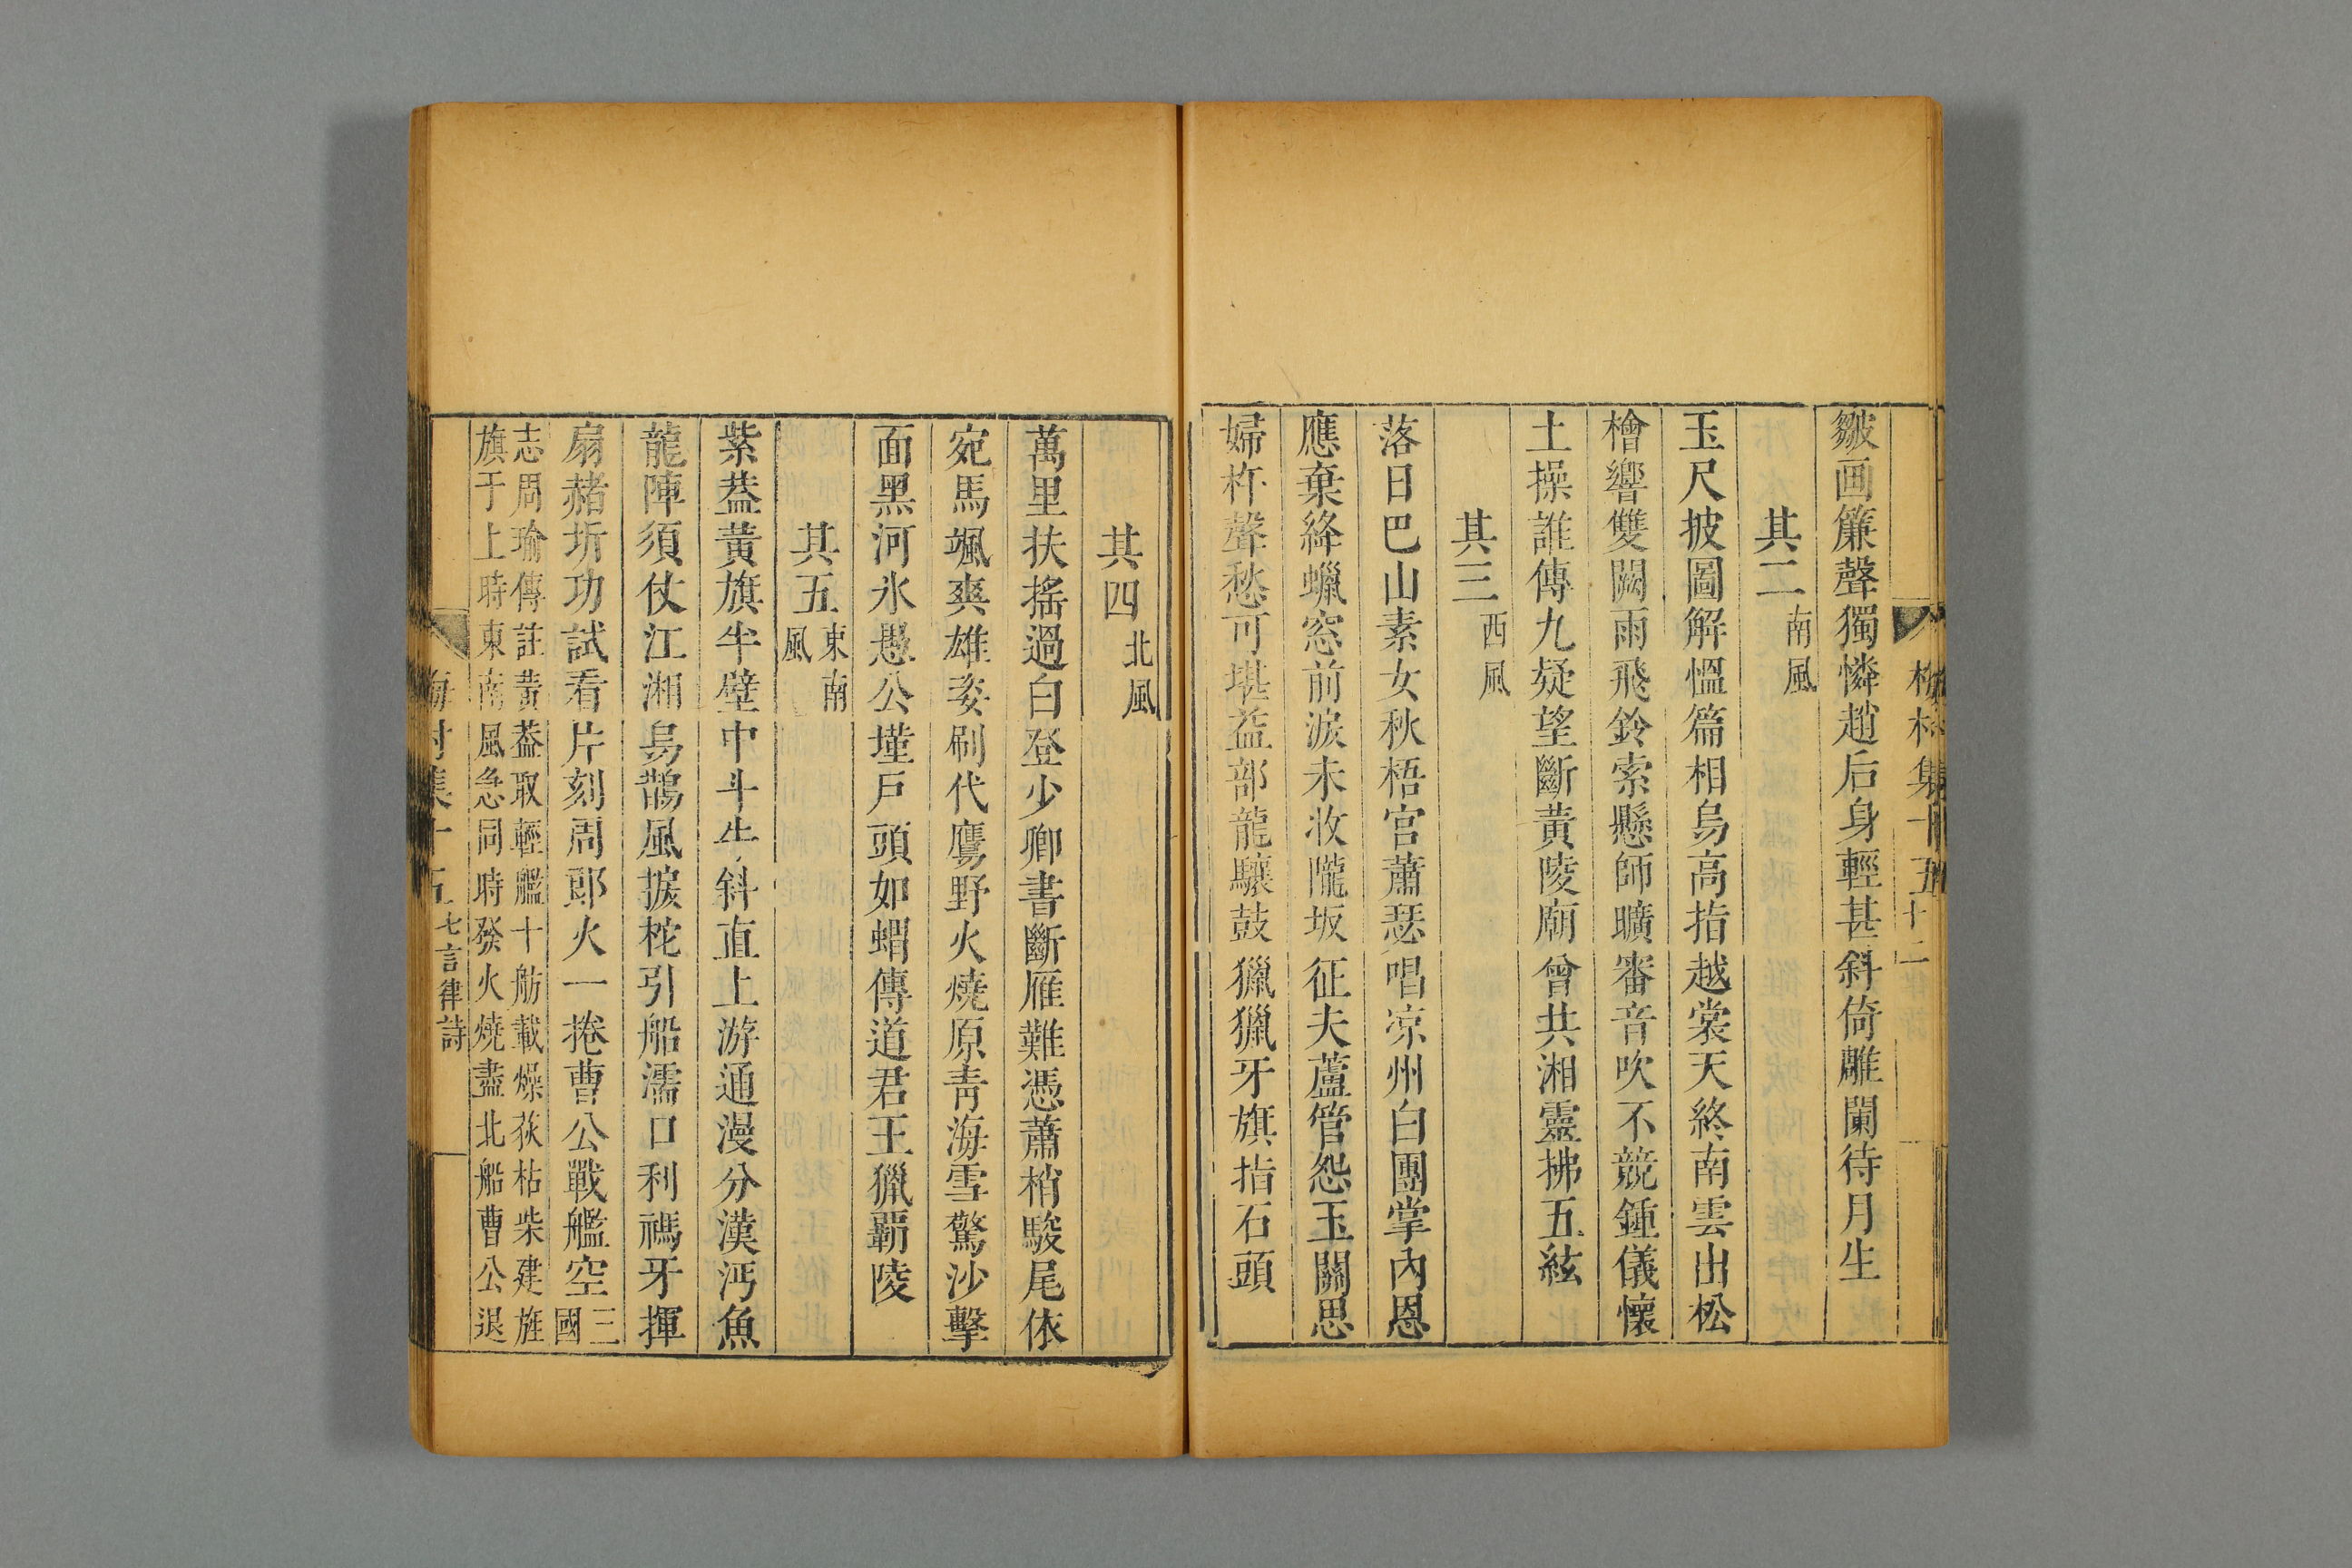 梅村集十五 十二
皺画簾聲獨憐趙后身輕甚斜倚雕闌待月生
其二 南風
玉尺披圖解慍篇相烏高指越裳天終南雲出松
檜響雙闕雨飛鈴索懸師曠審音吹不競鍾儀懷
土操誰傳九疑望斷黃陵廟曾共湘靈拂五絃
其三 西風
落日巴山素女秋梧宮蕭瑟唱凉州白團掌內恩
應棄絳蠟窓前淚未收隴坂征夫蘆管怨玉關思
婦杵聲愁可堪益部龍驤鼓獵獵牙旗指石頭
其四 北風
萬里扶搖過白登少卿書斷雁難憑蕭梢駿尾依
宛馬颯爽雄姿刷代鷹野火燒原青海雪驚沙擊
面黑河氷愚公墐戸頭如蝟傳道君王獵霸陵
其五 東南風
紫葢黃旗半壁中斗牛斜直上游通漫分漢沔魚
龍陣須仗江湘烏鵲風捩柁引船濡口利禡牙揮
扇赭圻功試看片刻周郎火一捲曹公戰艦空 三國
志周瑜傳註黃葢取輕艦十舫載燥荻枯柴建旌
旗于上時東南風急同時發火燒盡北船曹公退
梅村集十五 七言律詩